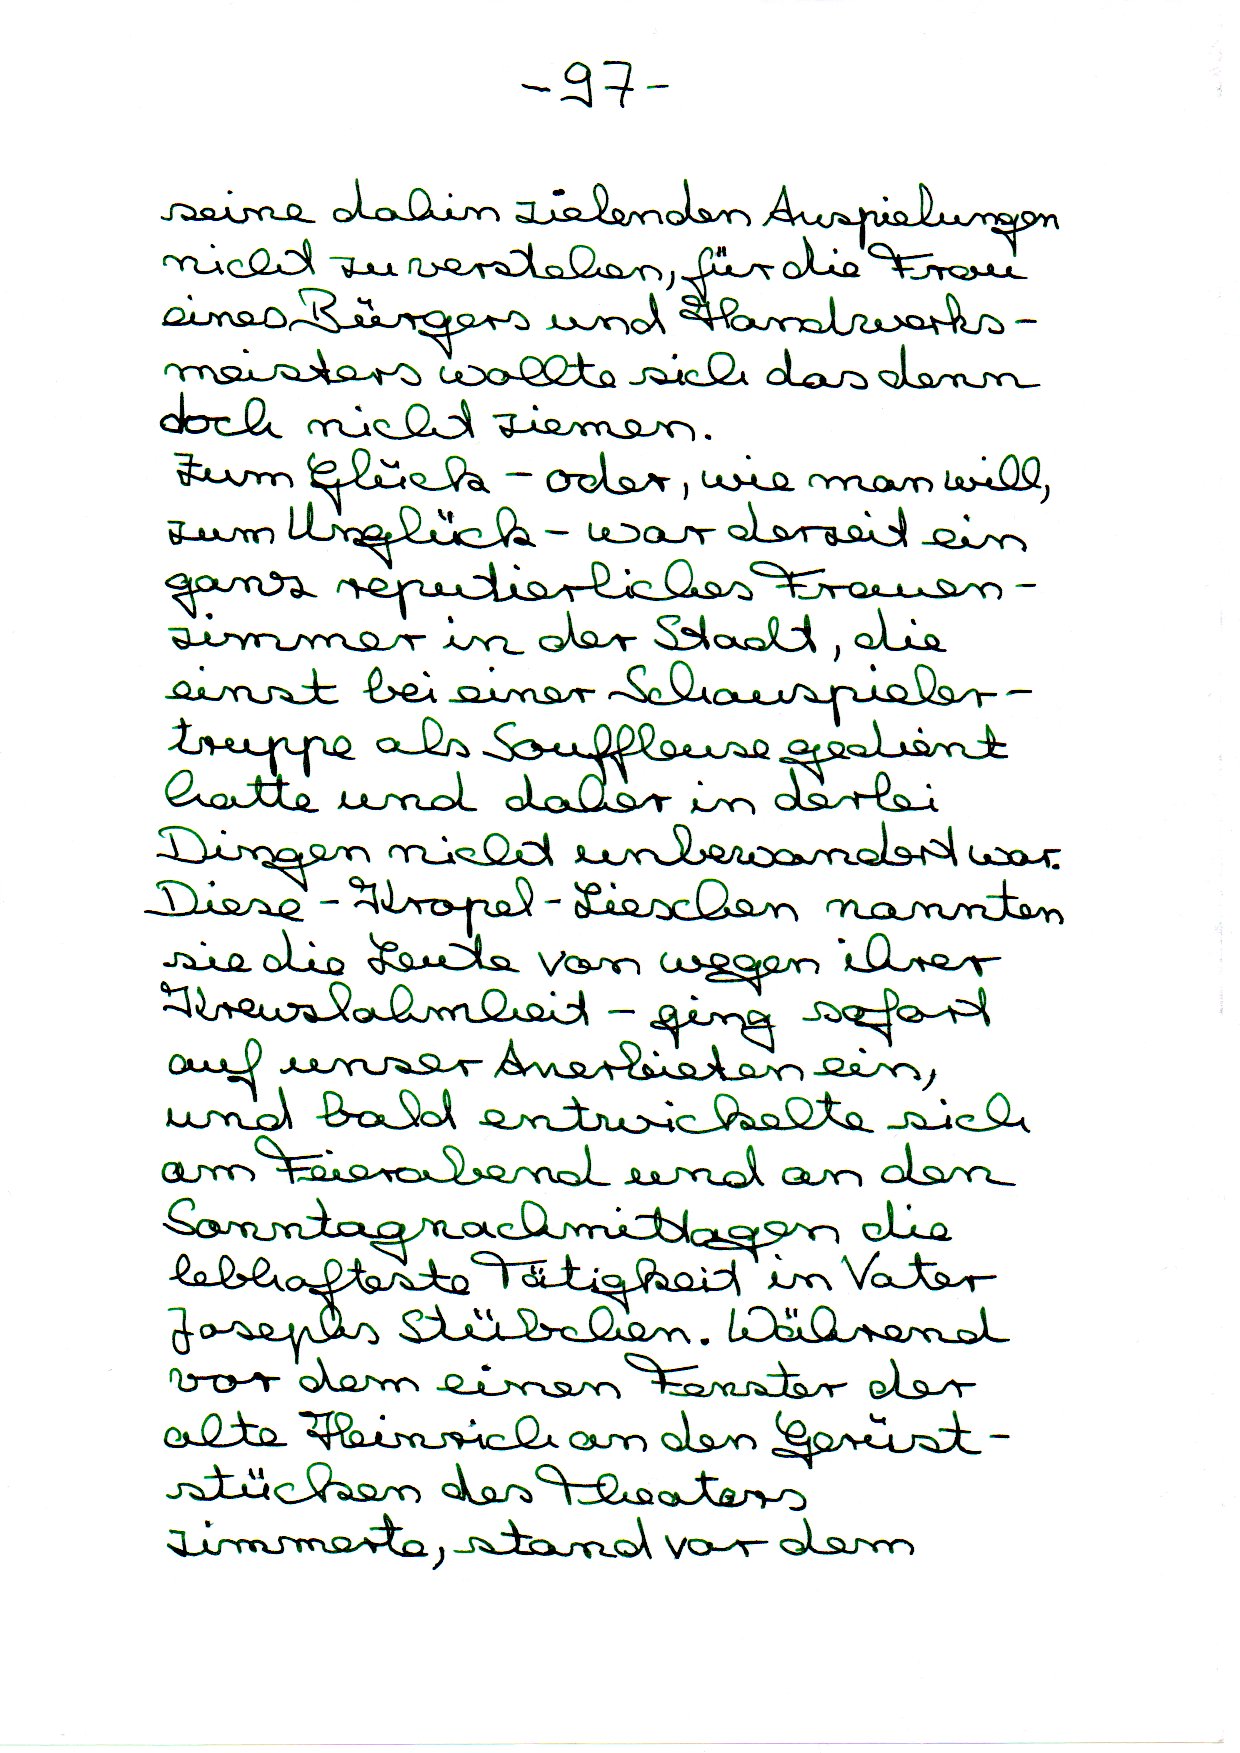 -97-
seine dahin zielenden Anspielungen
nicht zu verstehen, für die Frau
eines Bürgers und Handwerks-
meisters wollte sich das denn
doch nicht ziemen.
Zum Glück - oder, wie man will,
zum Unglück - war derzeit ein
ganz reputierliches Frauen-
zimmer in der Stadt, die
einst bei einer Schauspieler-
truppe als Souffleuse gedient
hatte und daher in derlei
Dingen nicht unbewandert war.
Diese - Kropel-Lieschen nannten
sie die Leute von wegen ihrer
Kreuzlahmheit - ging sofort
auf unser Anerbieten ein,
und bald entwickelte sich
am Feierabend und an den
Sonntagnachmittagen die
lebhafteste Tätigkeit in Vater
Josephs Stübchen. Während
vor dem einen Fenster der
alte Heinrich an den Gerüst-
stücken des Theaters
zimmerte, stand vor dem